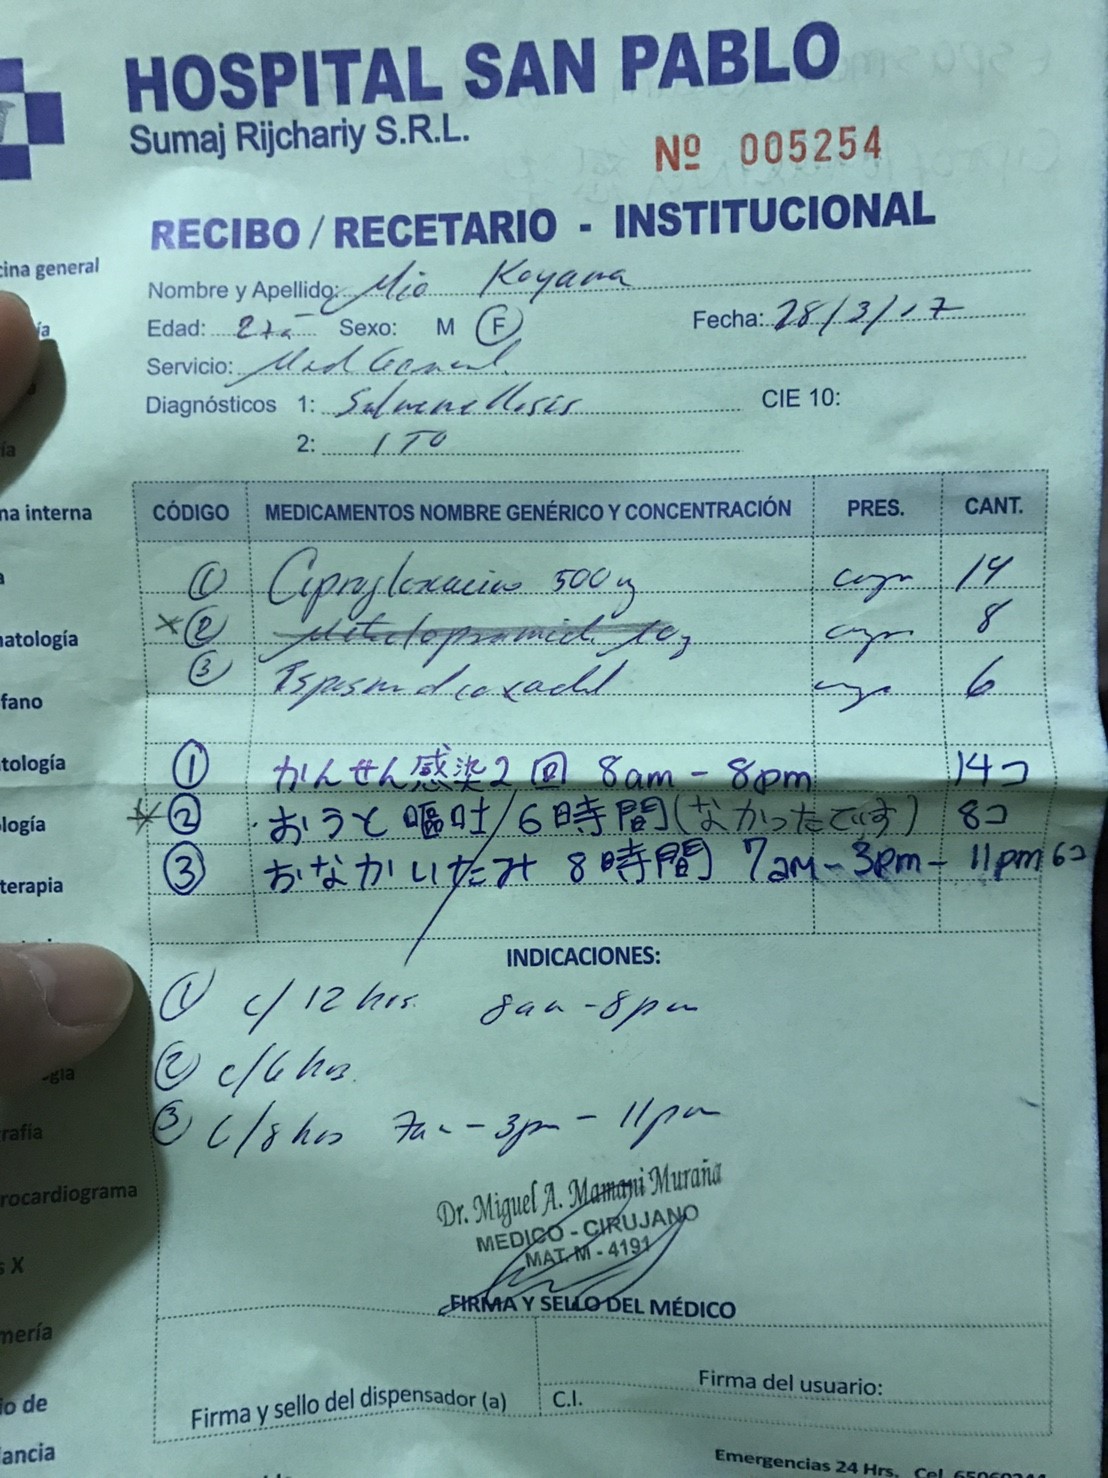 HOSPITAL SAN PABLO
Sumaj Rijchariy S.R.L.
Nº 005254
RECIBO / RECETARIO - INSTITUCIONAL
cina general
Nombre y Apellido: Mio Koyama
ía
Edad: Sexo: M F Fecha: 28/3/17
Servicio: Med General
Diagnósticos 1: Salmonellosis CIE 10:
ía
2: ITO
na interna
CÓDIGO MEDICAMENTOS NOMBRE GENÉRICO Y CONCENTRACIÓN PRES. CANT.
① Ciprofloxacino 500 14
natología
② Metoclopramida 8
③ 6
fano
tología
① かんせん感染2回 8am - 8pm 14コ
ología
② おうと嘔吐/6時間(なかったです) 8コ
terapia
③ おなかいたみ 8時間 7am - 3pm - 11pm 6コ
INDICACIONES:
① c/12 hrs. 8am - 8pm
② c/6 hrs.
-gia
③ c/8 hrs 7am - 3pm - 11pm
rafía
rocardiograma
Dr. Miguel A. Mamani Muraña
MEDICO - CIRUJANO
MAT. M - 4191
s X
FIRMA Y SELLO DEL MÉDICO
mería
Firma del usuario:
io de
Firma y sello del dispensador (a) C.I.
lancia
Emergencias 24 Hrs. Cel.